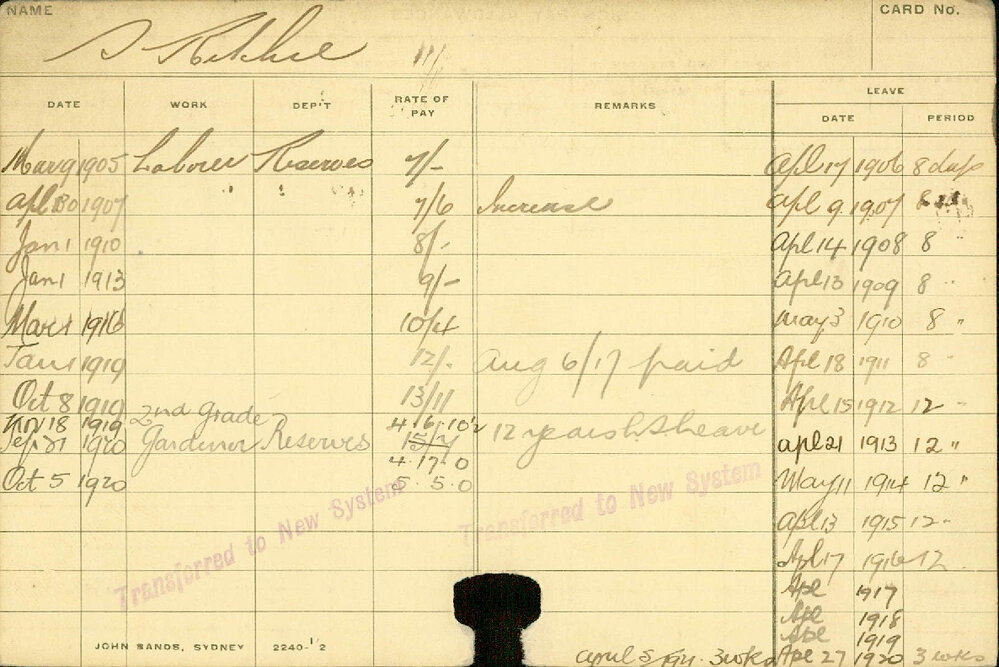 NAME
CARD No.
S Ritchie
DATE WORK DEP'T RATE OF PAY REMARKS LEAVE
DATE PERIOD
Mar 9 1905 Labourer Reserves 7/- Apl 17 1906 8 days
Apl 30 1907 " " 7/6 Increase Apl 9 1907 8
Jan 1 1910 8/- Apl 14 1908 8 "
Jan 1 1913 9/- Apl 13 1909 8 "
Mar 1 1916 10/4 May 3 1910 8 "
Jan 1 1919 12/- Aug 6/17 paid Apl 18 1911 8 "
Oct 8 1919 13/11 Apl 15 1912 12 "
Nov 18 1919 2nd Grade 4.16.10½ 12 years leave
1920 Gardener Reserves 15/7 Apl 21 1913 12 "
4.17.0
Oct 5 1920 5.5.0 May 11 1914 12 "
Apl 13 1915 12 "
Apl 17 1916 12
Apl 1917
Apl 1918
Apl 1919
Apl 27 1920 3 wks
3 wks
Transferred to New System
Transferred to New System
JOHN SANDS, SYDNEY 2240-½